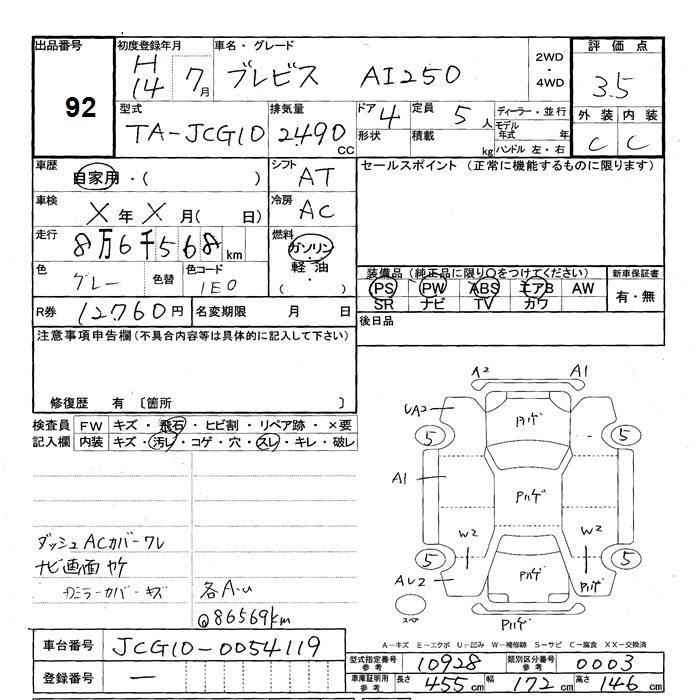 出品番号 初度登録年月 車名・グレード 評価点
92 H14 7月 ブレビス AI250 2WD・4WD 3.5
型式 排気量 ドア 4 定員 5人 ディーラー・並行 外装 内装
TA-JCG10 2490CC 形状 積載 kg モデル年式 年 ハンドル 左・右 C C
車歴 自家用・( ) シフト AT セールスポイント (正常に機能するものに限ります)
車検 X年X月( 日) 冷房 AC
走行 8万6千568km 燃料 ガソリン・軽油・( )
色 グレー 色替 色コード 1E0
装備品 (純正品に限り○をつけてください) 新車保証書
PS PW ABS エアB AW 有・無
SR ナビ TV カワ
R券 12760円 名変期限 月 日 後日品
注意事項申告欄(不具合内容等は具体的に記入して下さい)
修復歴 有 〔箇所 〕
検査員記入欄 FW キズ・飛石・ヒビ割・リペア跡・×要
内装 キズ・汚レ・コゲ・穴・スレ・キレ・破レ
A2 A1
UA2 ハゲ
5 5
A1 ハゲ
W2 W2
5 5
AU2 ハゲ ハゲ
スペア ハゲ
ダッシュACカバーワレ
ナビ画面ヤケ
ミラーカバーキズ 各A.u
Q86569km
A-キズ E-エクボ U-凹み W-補修跡 S-サビ C-腐食 XX-交換済
車台番号 JCG10-0054119
登録番号 —
型式指定番号 参考 10928 類別区分番号 参考 0003
車庫証明用 参考 長さ 455cm 幅 172cm 高さ 146cm